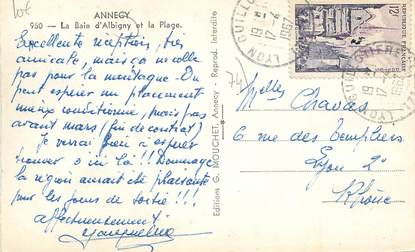 10€
ANNECY
960 - La Baie d'Albigny et la Plage.
Excellente réception, très
amicale, mais ça ne colle
pas pour la montagne. On
peut espérer un placement
mieux conditionné, mais pas
avant mars (fin de contrat)
Je verrai bien à espérer
trouver d'ici là!! Dommage
la région aurait été plaisante
pour les jours de sortie!!!
affectueusement
Jacqueline
Editions G. MOUCHET, Annecy - Reprod. interdite
74
LYON GUILLOTIERE
RHONE
12F
Melles Chavas
6 rue des Templiers
Lyon 2e
Rhône